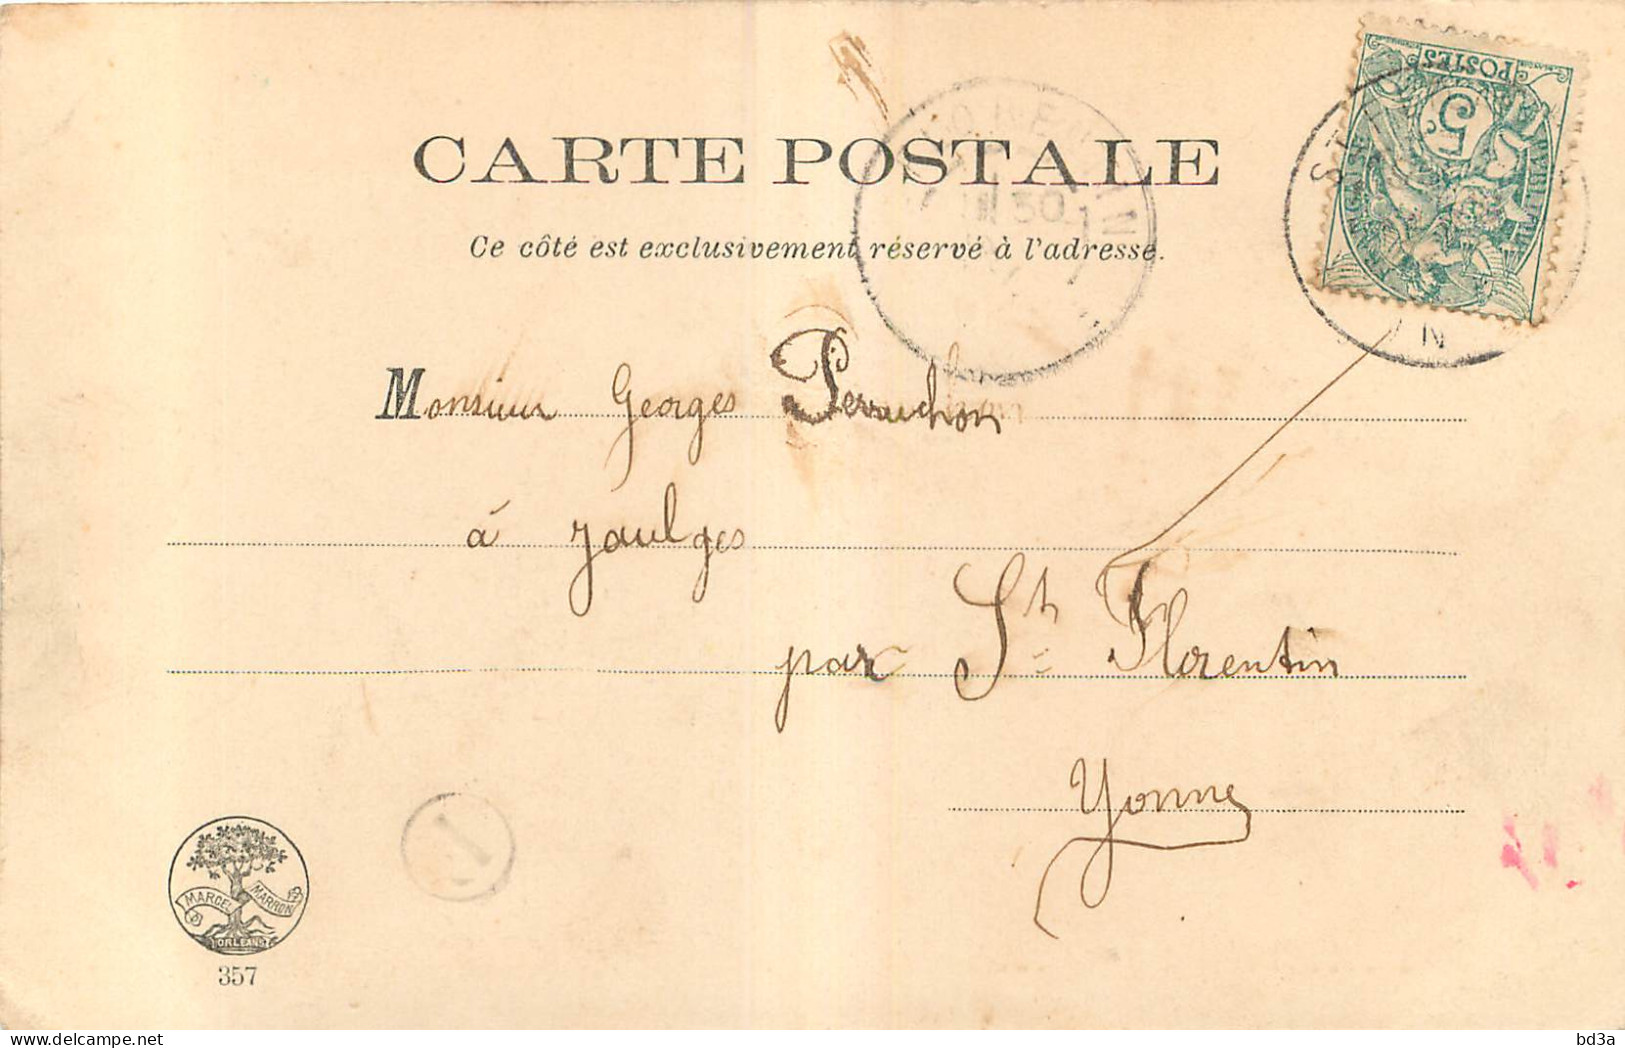 CARTE POSTALE
Ce côté est exclusivement réservé à l'adresse.
POSTES
5c
Monsieur Georges Perruchon
à Jaulges
par St Florentin
Yonne
MARCEL MARRON
ORLEANS
357
bd3a